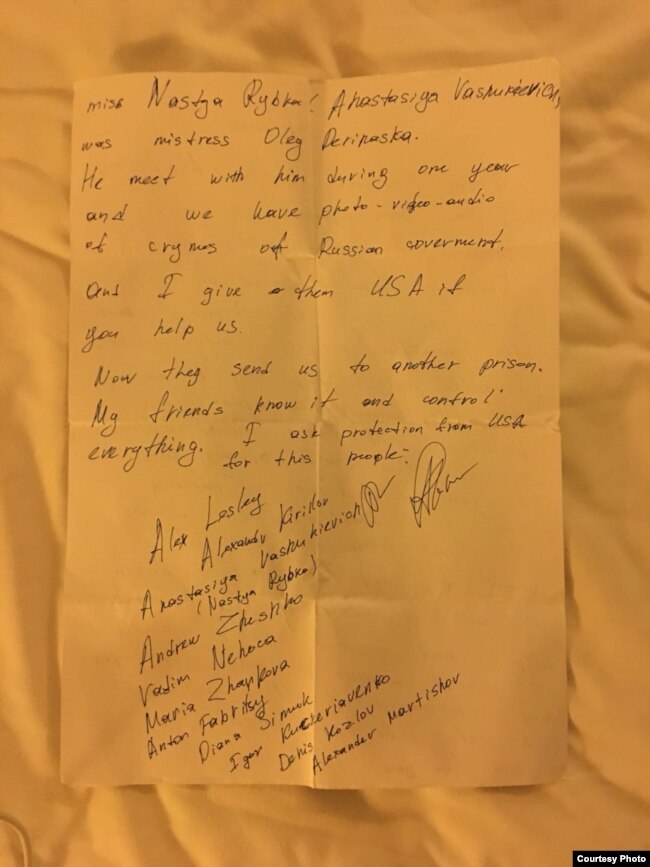 miss Nastya Rybka! Anastasiya Vashukievich,
was mistress Oleg Deripaska.
He meet with him during one year
and we have photo-video-audio
of crymes of Russian goverment.
and I give them USA if
you help us.
Now they send us to another prison.
My friends know it and control
everything. I ask protection from USA
for this people:
Alex Lesley
Alexandr Kirillov
Anastasiya Vashukievich
(Nastya Rybka)
Andrew Zheshko
Vadim Nehoca
Maria Zharkova
Anton Fabritsy
Diana Simuk
Igor Kucheriavenko
Denis Kozlov
Alexander Martishov
Courtesy Photo